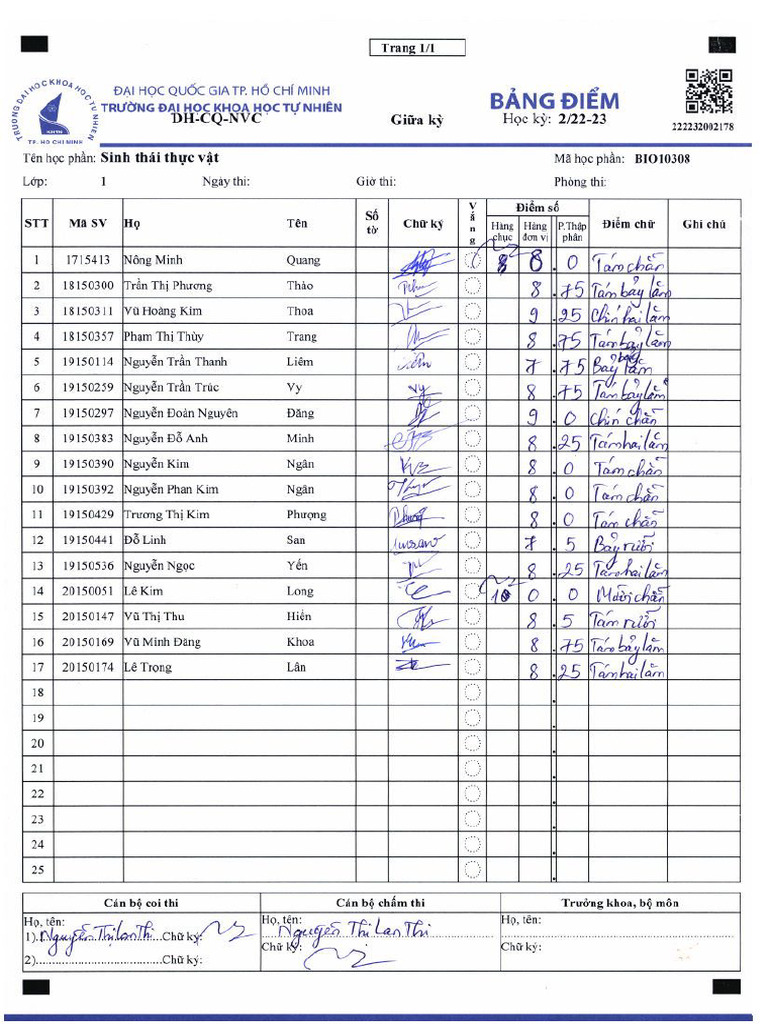 Trang 1/1
TRƯỜNG ĐẠI HỌC KHOA HỌC TỰ NHIÊN
TP. HỒ CHÍ MINH
ĐẠI HỌC QUỐC GIA TP. HỒ CHÍ MINH
TRƯỜNG ĐẠI HỌC KHOA HỌC TỰ NHIÊN
DH-CQ-NVC
Giữa kỳ
BẢNG ĐIỂM
Học kỳ: 2/22-23
222232002178
Tên học phần: Sinh thái thực vật Mã học phần: BIO10308
Lớp: 1 Ngày thi: Giờ thi: Phòng thi:
STT Mã SV Họ Tên Số tờ Chữ ký Vắng Điểm số Điểm chữ Ghi chú
Hàng chục Hàng đơn vị P.Thập phân
1 1715413 Nông Minh Quang 8 . 0 Tám chẵn
2 18150300 Trần Thị Phương Thảo 8 . 75 Tám bảy lăm
3 18150311 Vũ Hoàng Kim Thoa 9 . 25 Chín hai lăm
4 18150357 Phạm Thị Thùy Trang 8 . 75 Tám bảy lăm
5 19150114 Nguyễn Trần Thanh Liêm 7 . 75 Bảy bảy lăm
6 19150259 Nguyễn Trần Trúc Vy Vy 8 . 75 Tám bảy lăm
7 19150297 Nguyễn Đoàn Nguyên Đăng 9 . 0 Chín chẵn
8 19150383 Nguyễn Đỗ Anh Minh 8 . 25 Tám hai lăm
9 19150390 Nguyễn Kim Ngân 8 . 0 Tám chẵn
10 19150392 Nguyễn Phan Kim Ngân 8 . 0 Tám chẵn
11 19150429 Trương Thị Kim Phượng 8 . 0 Tám chẵn
12 19150441 Đỗ Linh San 7 . 5 Bảy rưỡi
13 19150536 Nguyễn Ngọc Yến 8 . 25 Tám hai lăm
14 20150051 Lê Kim Long 10 0 . 0 Mười chẵn
15 20150147 Vũ Thị Thu Hiền 8 . 5 Tám rưỡi
16 20150169 Vũ Minh Đăng Khoa 8 . 75 Tám bảy lăm
17 20150174 Lê Trọng Lân 8 . 25 Tám hai lăm
18
19
20
21
22
23
24
25
Cán bộ coi thi Cán bộ chấm thi Trưởng khoa, bộ môn
Họ, tên: Họ, tên: Nguyễn Thị Lan Thi Họ, tên:
1) Nguyễn Thị Lan Thi Chữ ký: Chữ ký: Chữ ký:
2) Chữ ký: